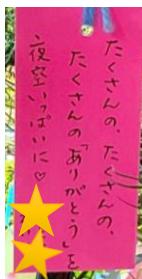 たくさんの、たくさんの、
たくさんの「ありがとう」を
夜空いっぱいに♡